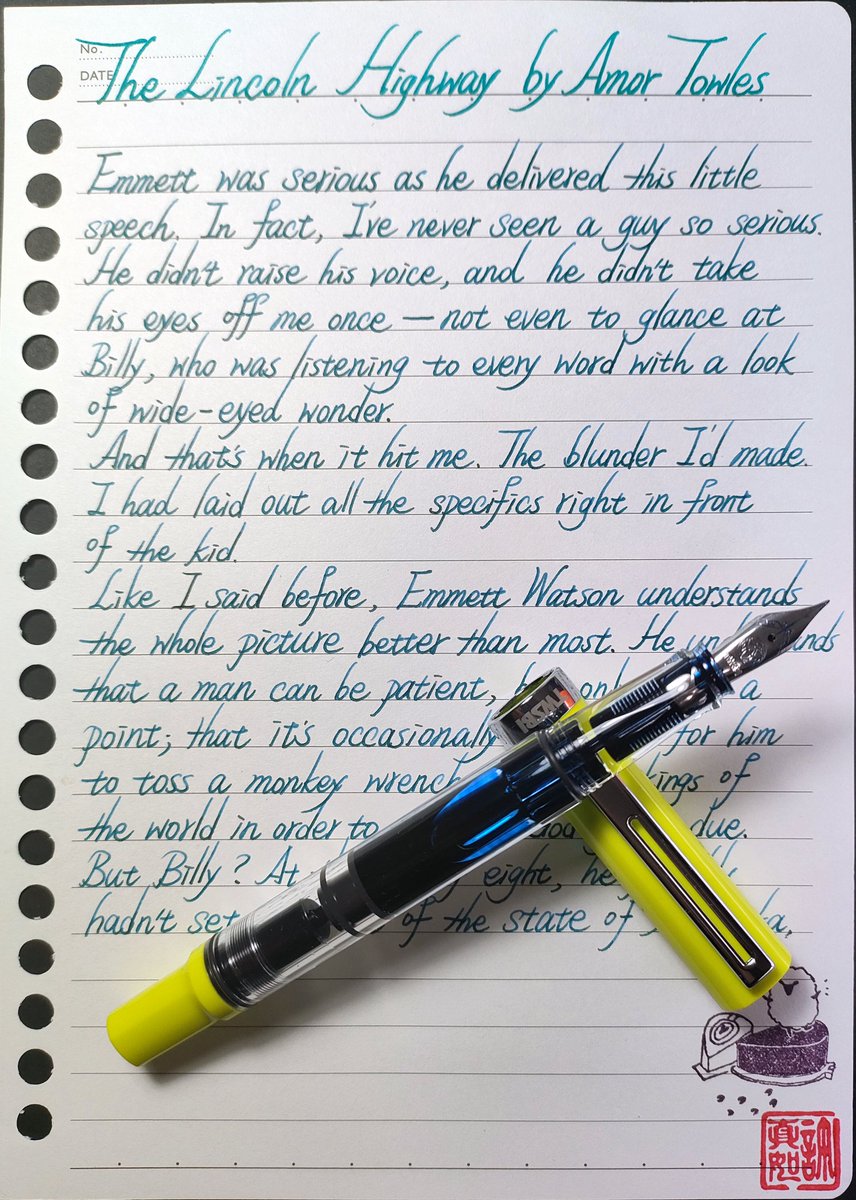 No.
DATE
The Lincoln Highway by Amor Towles
Emmett was serious as he delivered this little
speech. In fact, I've never seen a guy so serious.
He didn't raise his voice, and he didn't take
his eyes off me once — not even to glance at
Billy, who was listening to every word with a look
of wide-eyed wonder.
And that's when it hit me. The blunder I'd made.
I had laid out all the specifics right in front
of the kid.
Like I said before, Emmett Watson understands
the whole picture better than most. He
that a man can be patient, a
point; that it's occasionally for him
to toss a monkey wrench of
the world in order to due.
But Billy? At eight, he
hadn't set of the state of
TWSBI